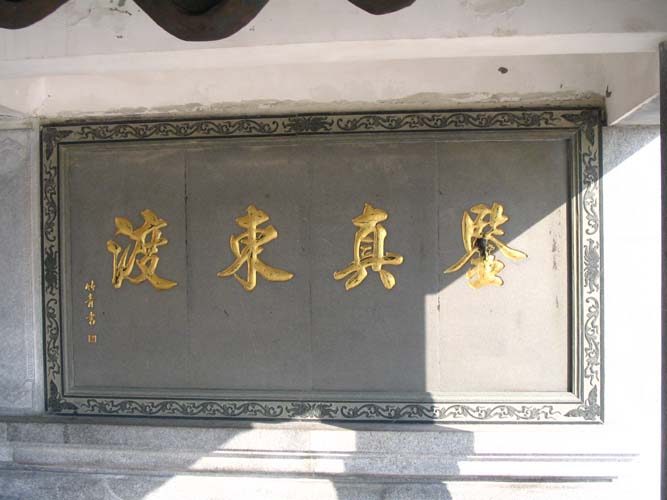 鑒真東渡
青書